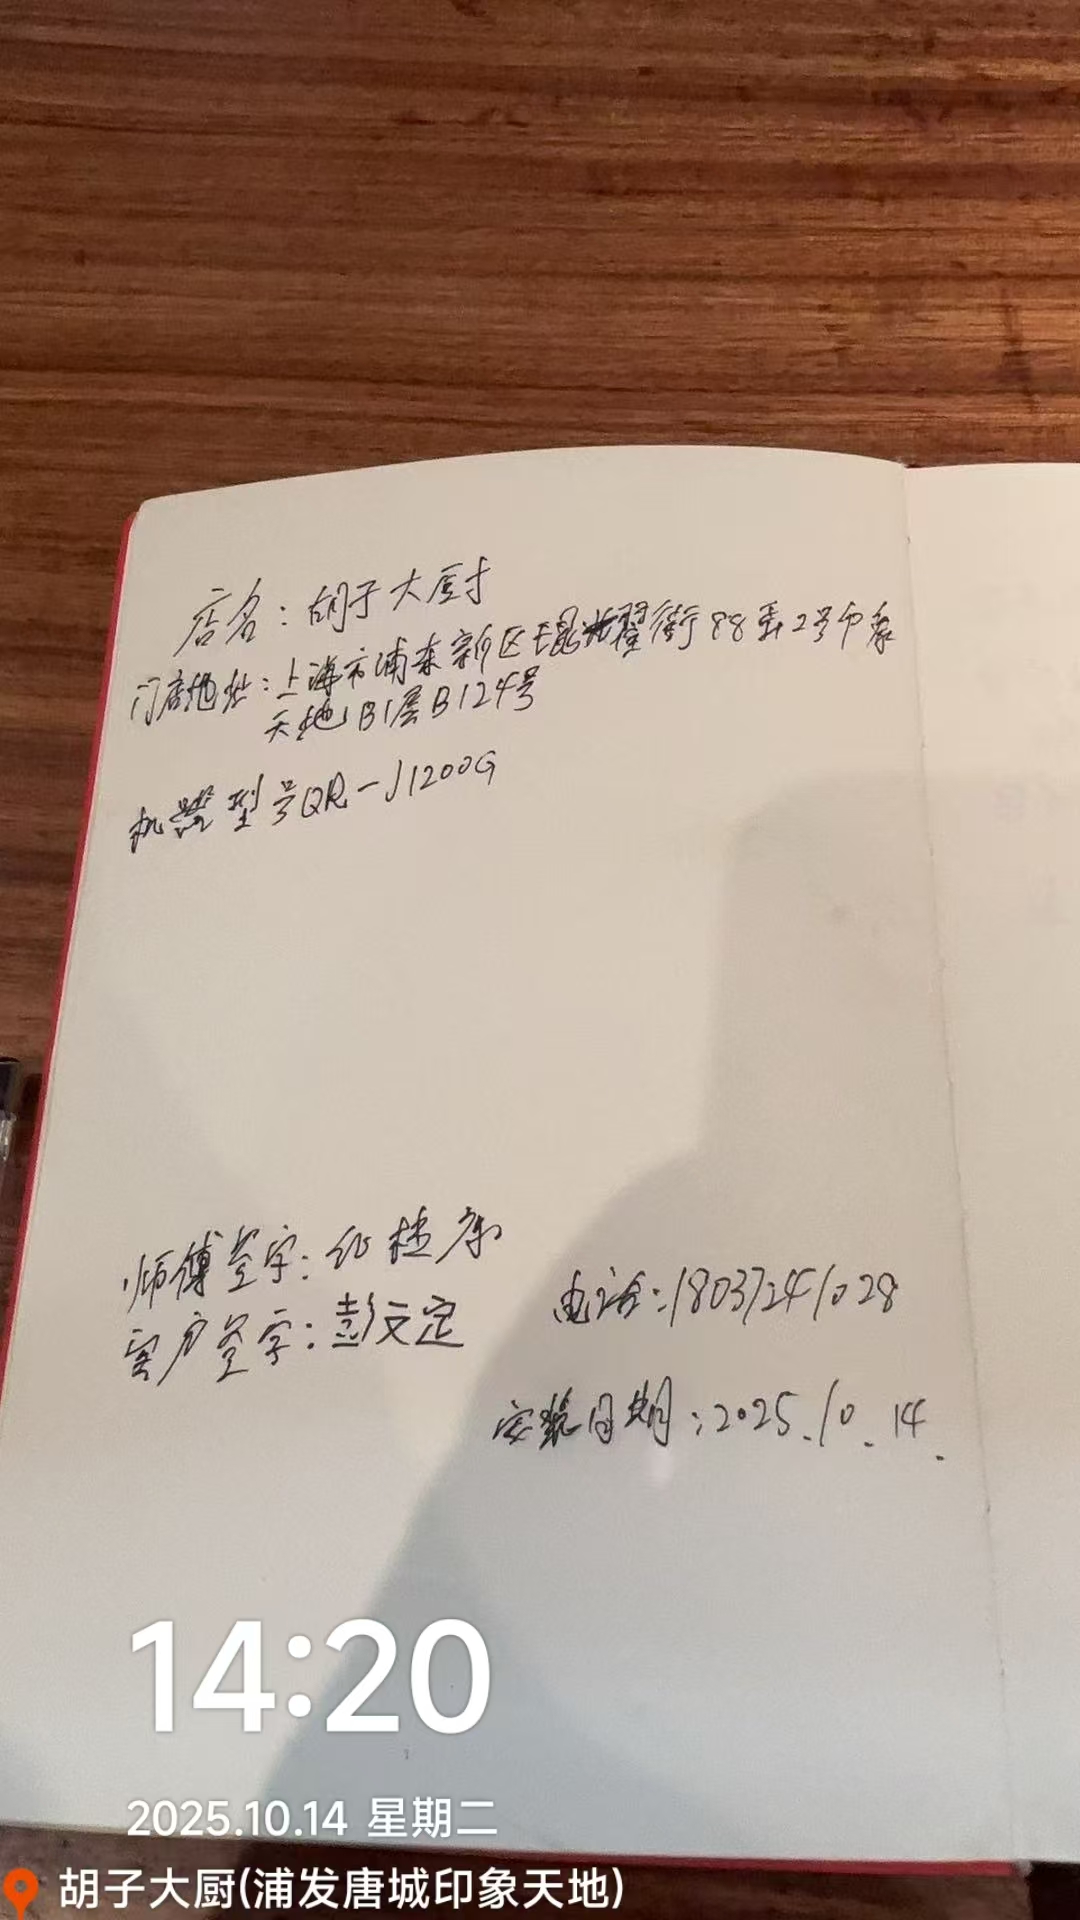 店名：胡子大厨
门店地址：上海市浦东新区琨耀街88弄2号印象
天地B1层B124号
机器型号QR-J1200G
师傅签字：
客户签字：彭文定
电话：18037241028
安装日期：2025.10.14.
14:20
2025.10.14 星期二
胡子大厨(浦发唐城印象天地)